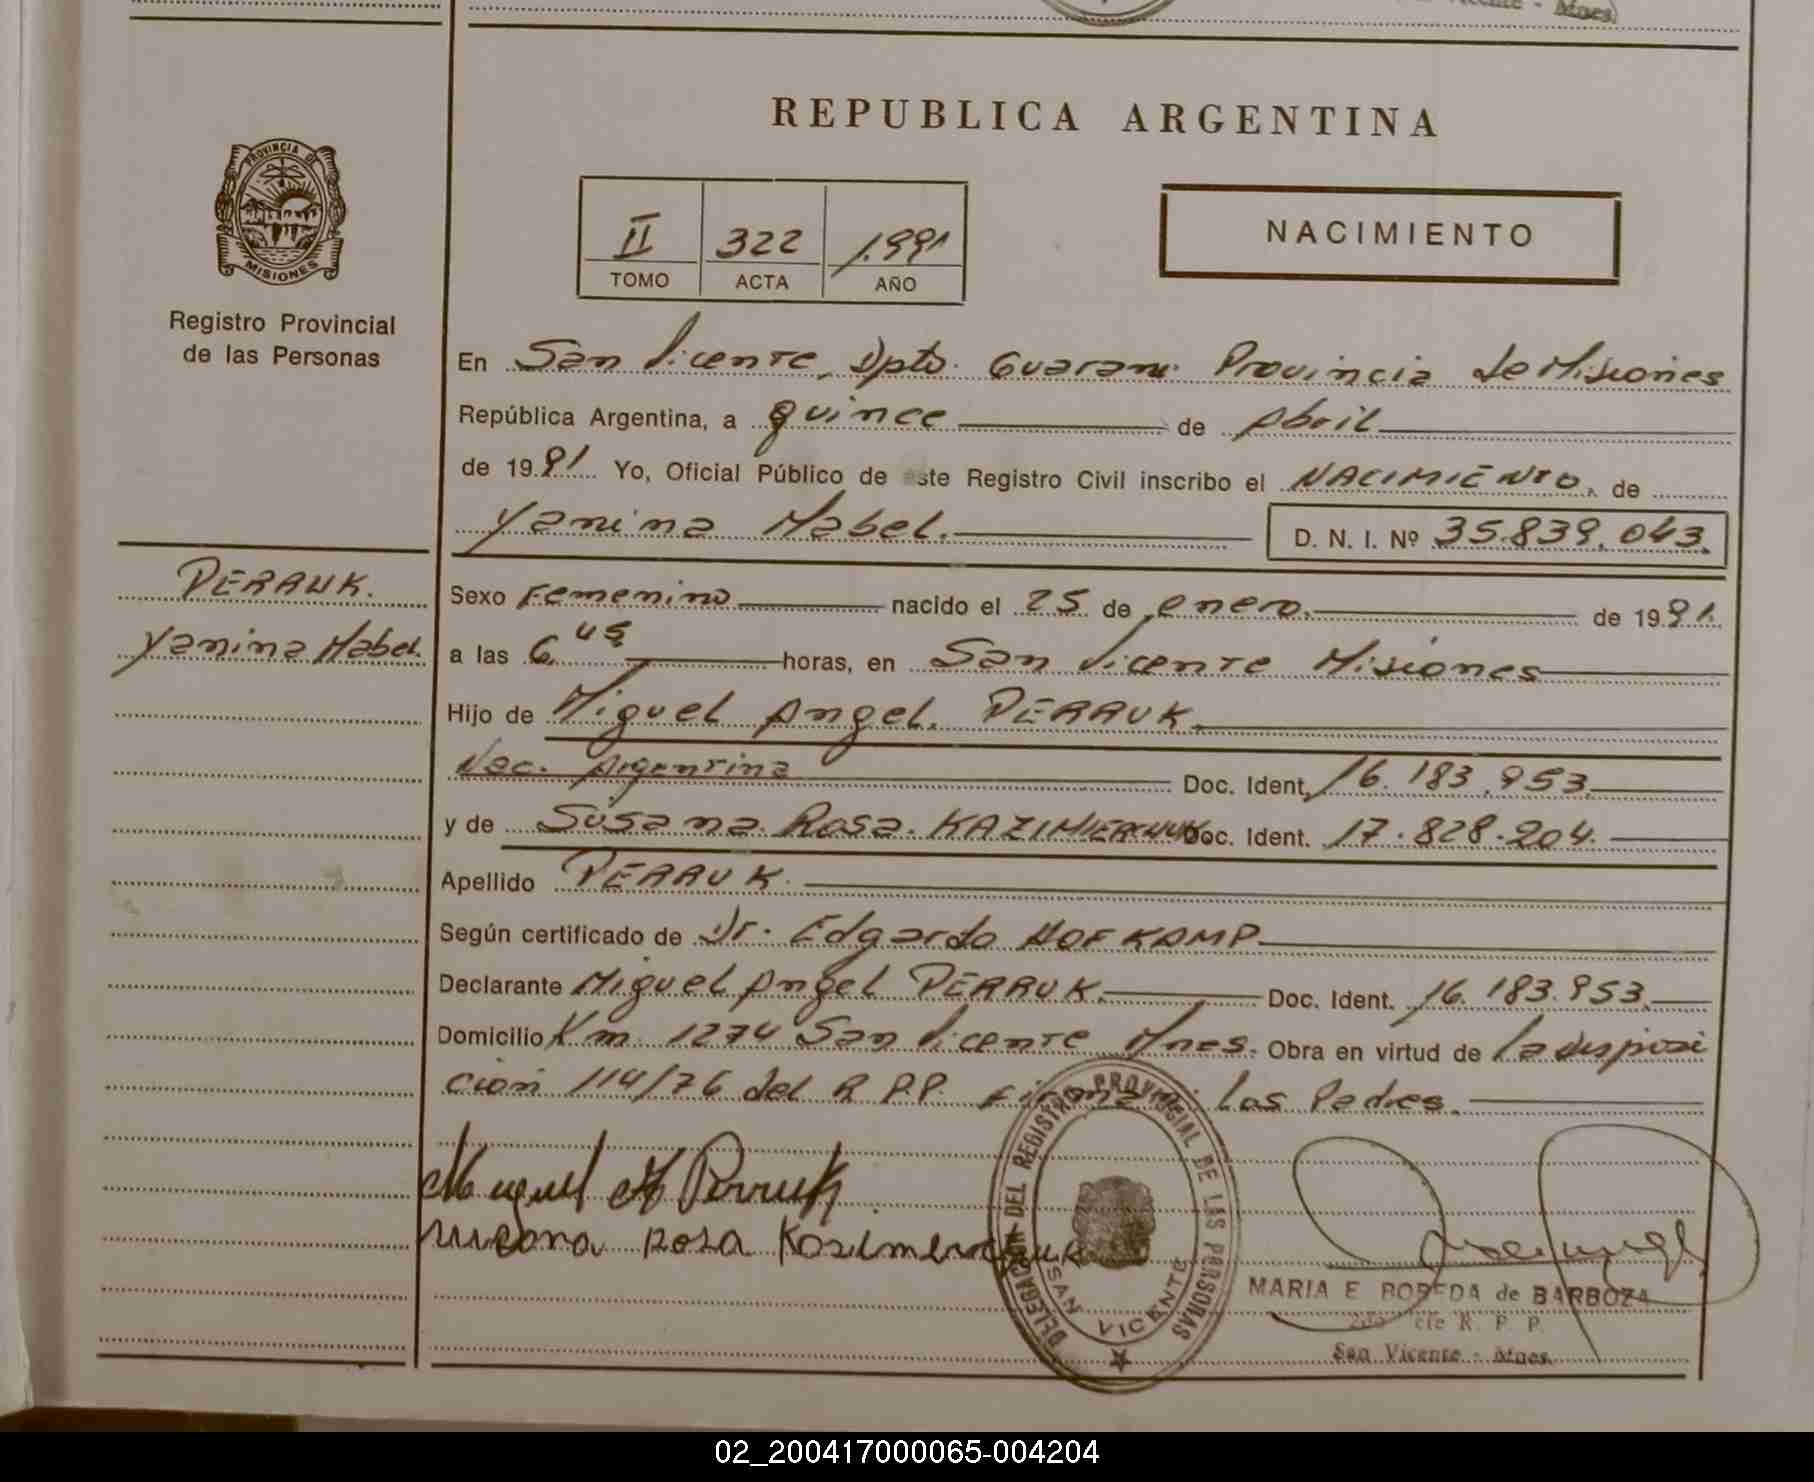 REPUBLICA ARGENTINA
PROVINCIA DE
MISIONES
Registro Provincial
de las Personas
II 322 1.991
TOMO ACTA AÑO
NACIMIENTO
En San Vicente, Dpto. Guarani Provincia de Misiones
República Argentina, a quince de Abril
de 1991 Yo, Oficial Público de este Registro Civil inscribo el NACIMIENTO, de
Yanina Mabel. D. N. I. Nº 35.839.043.
PERRUK.
Yanina Mabel.
Sexo Femenino nacido el 25 de enero. de 1991.
a las 6 45 horas, en San Vicente Misiones
Hijo de Miguel Angel. PERRUK.
Nac. Argentina Doc. Ident. 16.183.953.
y de Susana Rosa. Doc. Ident. 17.828.204.
Apellido PERRUK.
Según certificado de Dr. Edgardo HOFKAMP
Declarante Miguel Angel PERRUK. Doc. Ident. 16.183.953.
Domicilio Km 1274 San Vicente Mnes. Obra en virtud de la disposi
cion 114/76 del R P.P. Los Padres.
Miguel A Perruk
Rosa
DELEGACION DEL REGISTRO PROVINCIAL DE LAS PERSONAS
SAN VICENTE
MARIA E de BARBOZA
R. P. P.
San Vicente - Mnes.
02_200417000065-004204